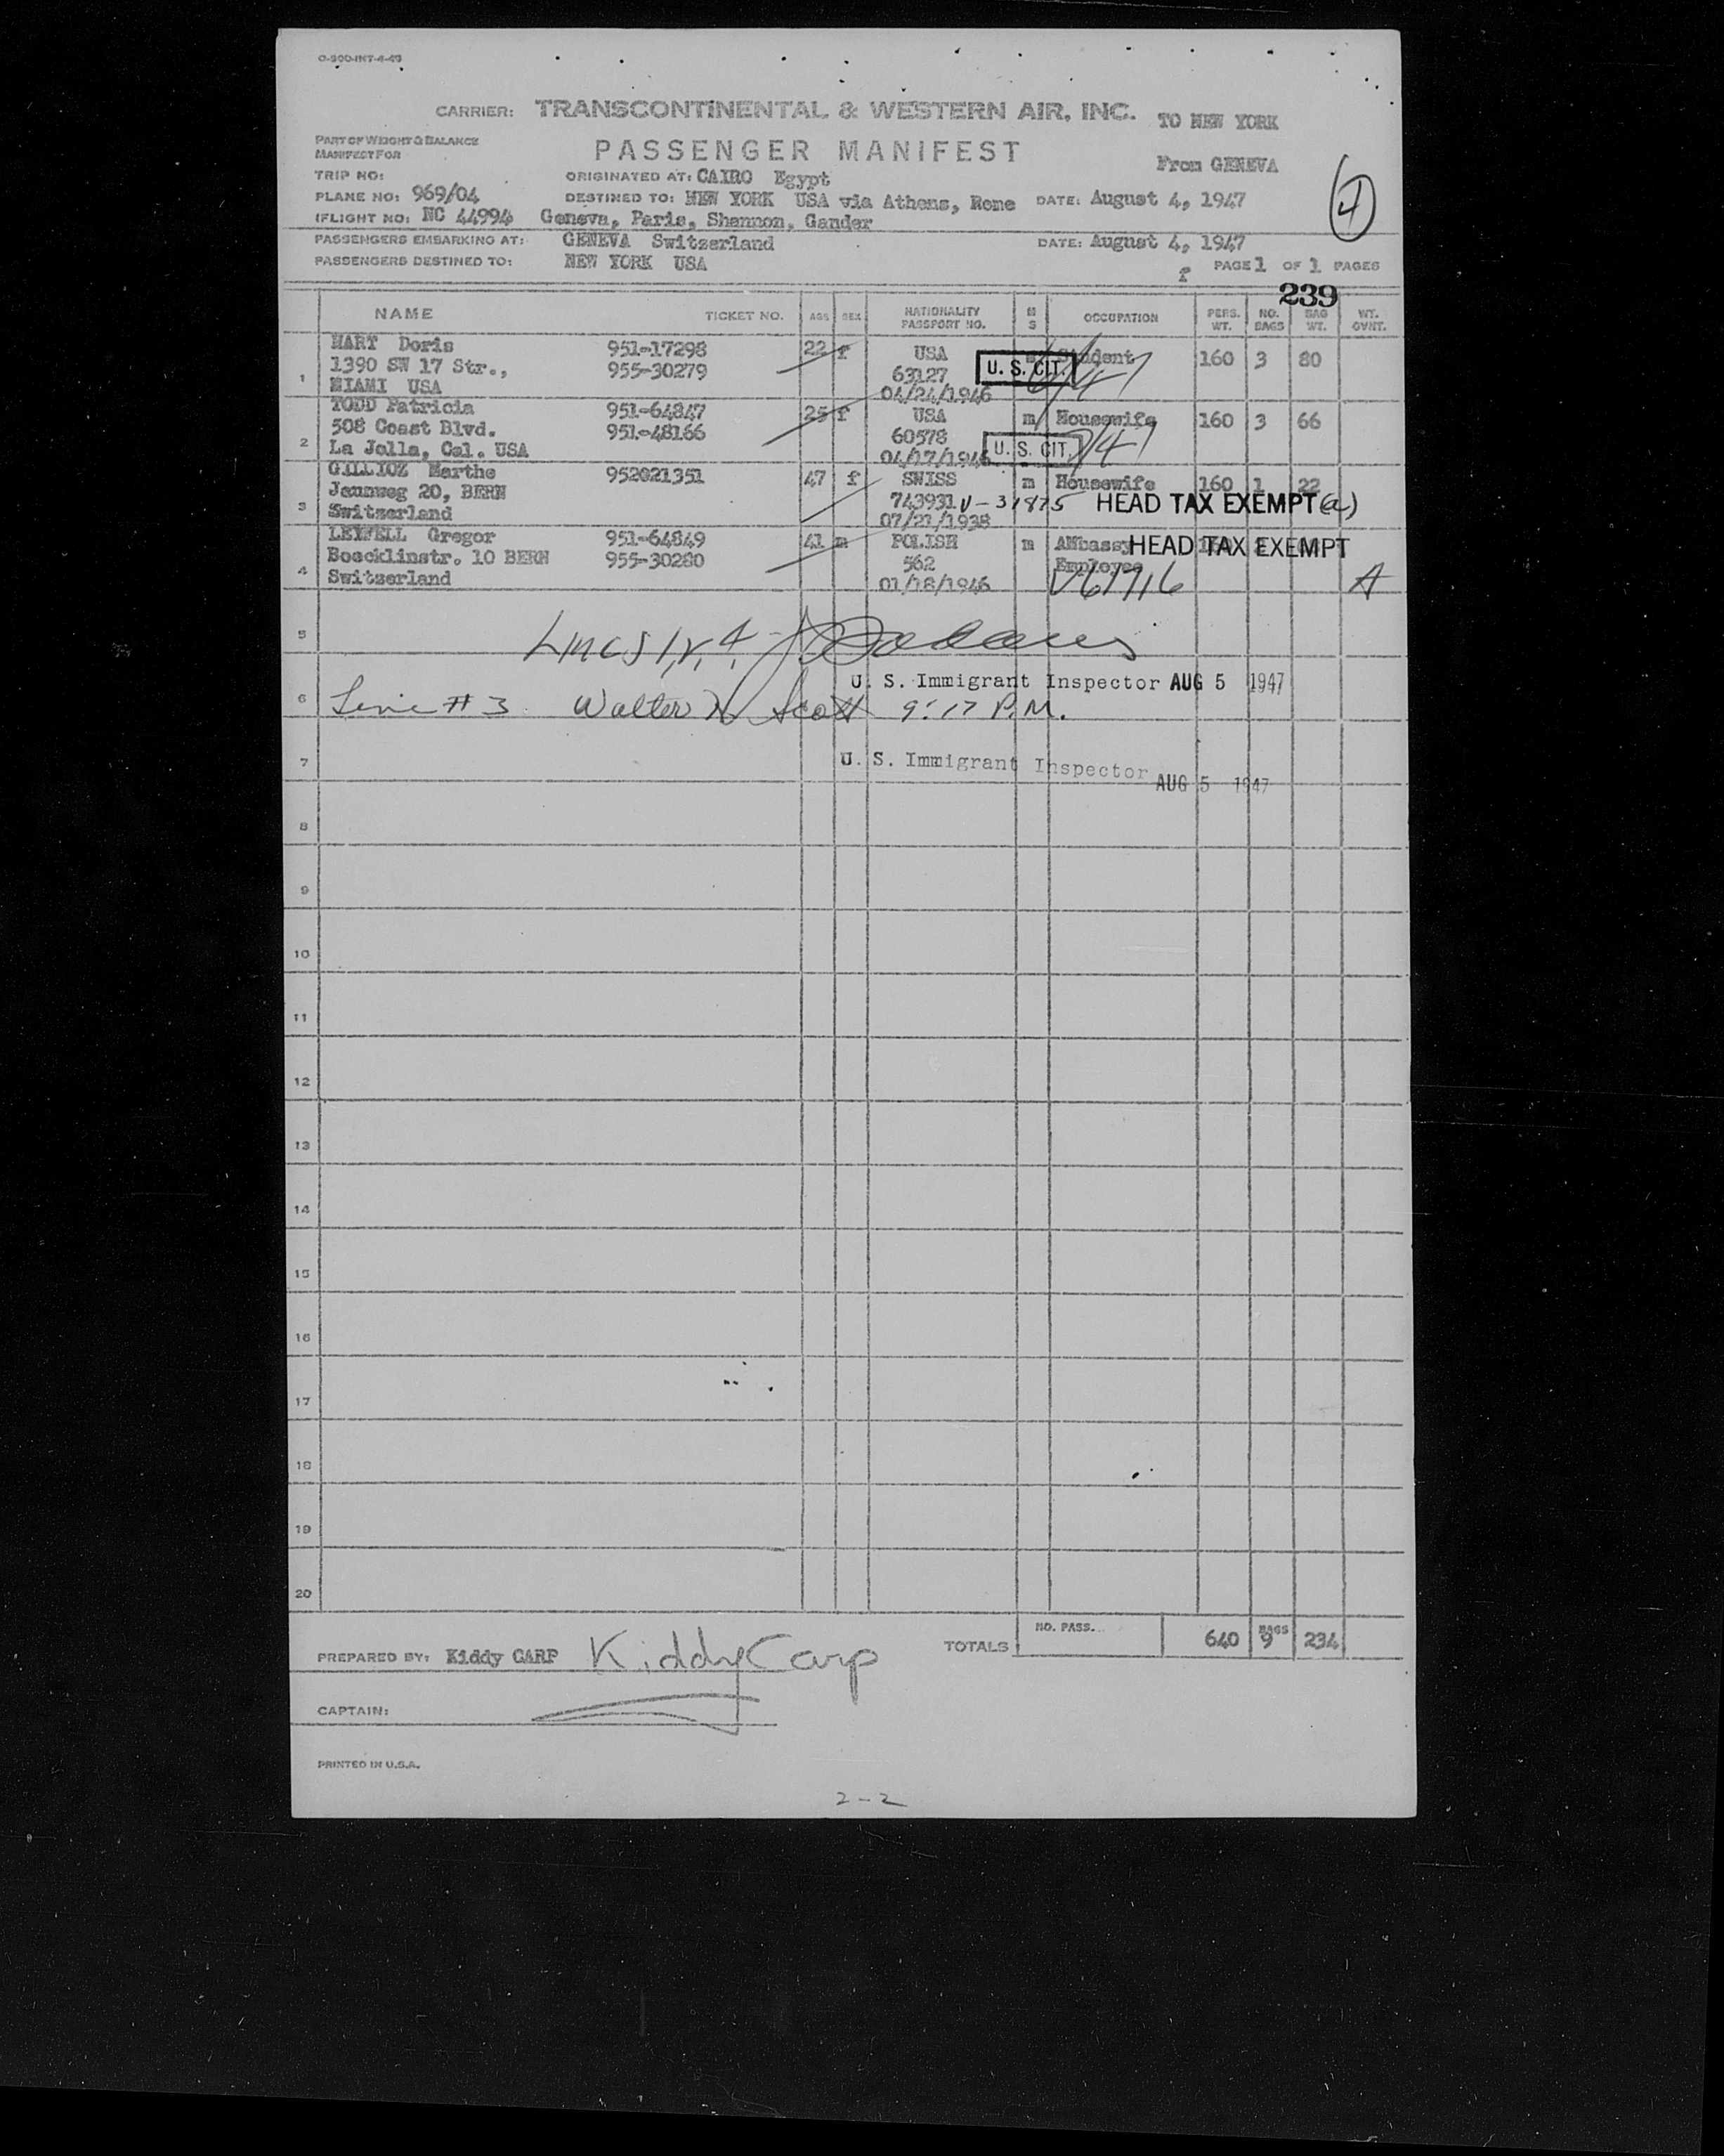 O-300-INT-4-45
CARRIER: TRANSCONTINENTAL & WESTERN AIR, INC. TO NEW YORK
PART OF WEIGHT & BALANCE
MANIFEST FOR
PASSENGER MANIFEST
From GENEVA
TRIP NO:
ORIGINATED AT: CAIRO Egypt
PLANE NO: 969/04 DESTINED TO: NEW YORK USA via Athens, Rome DATE: August 4, 1947
FLIGHT NO: NC 44994 Geneva, Paris, Shannon, Gander
PASSENGERS EMBARKING AT: GENEVA Switzerland DATE: August 4, 1947
PASSENGERS DESTINED TO: NEW YORK USA
f PAGE 1 OF 1 PAGES
239
NAME TICKET NO. AGE SEX NATIONALITY PASSPORT NO. M S OCCUPATION PERS. WT. NO. BAGS BAG WT. WT. OVNT.
HART Doris 951-17298 22 f USA s Student 160 3 80
1390 SW 17 Str., 955-30279 63127 U. S. CIT.
1 MIAMI USA 04/24/1946
TODD Patricia 951-64847 25 f USA m Housewife 160 3 66
508 Coast Blvd. 951-48166 60578
2 La Jolla, Cal. USA 04/17/1946 U. S. CIT.
GILLIOZ Marthe 952021351 47 f SWISS m Housewife 160 1 22
Jaunweg 20, BERN 743931 V-31875 HEAD TAX EXEMPT (a)
3 Switzerland 07/21/1938
Gregor 951-64849 41 m POLISH m Ambassy HEAD TAX EXEMPT
Boecklinstr. 10 BERN 955-30280 562 Employee
4 Switzerland 01/18/1946 V61716 A
5 Lines 1, 2, 4
U. S. Immigrant Inspector AUG 5 1947
6 Line # 3 Walter N Scott 9:17 P.M.
7 U. S. Immigrant Inspector AUG 5 1947
8
9
10
11
12
13
14
15
16
17
18
19
20
TOTALS NO. PASS. 640 BAGS 9 234
PREPARED BY: Kiddy CARP Kiddy Carp
CAPTAIN:
PRINTED IN U.S.A.
2-2